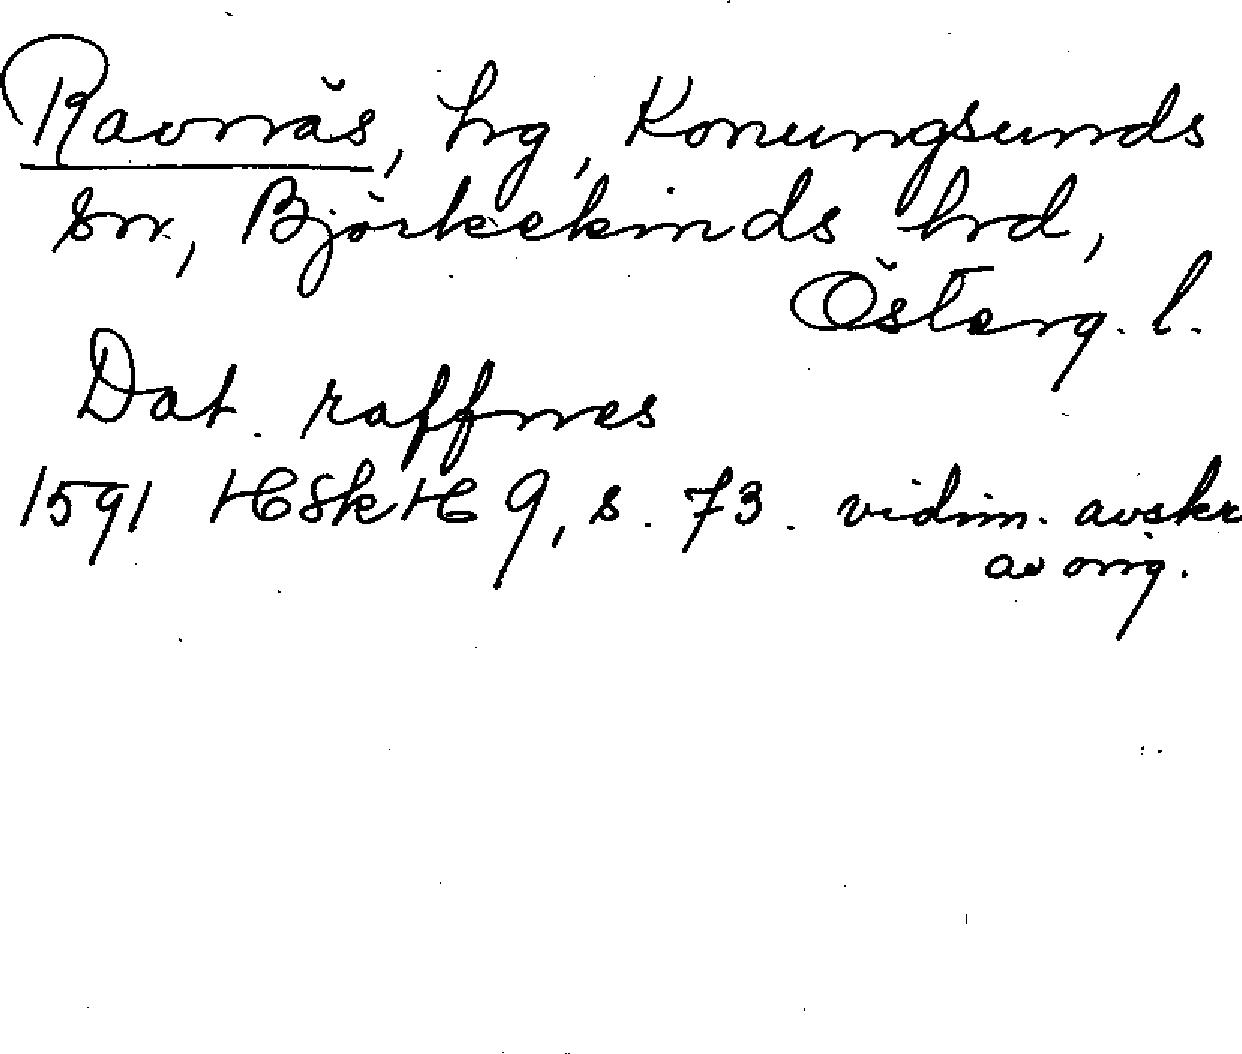 Ravnäs, hg, Konungsunds
sn, Björkekinds hrd,
Österg. l.
Dat. raffnes
1591 HSkH 9, s. 73. vidim. avskr
av orig.